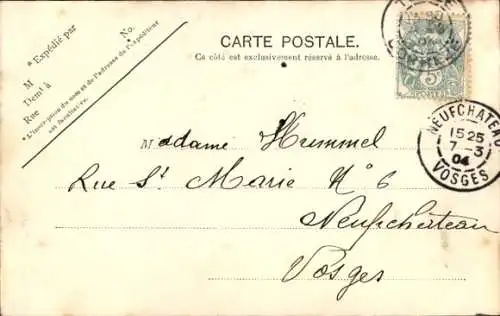 CARTE POSTALE.
Ce côté est exclusivement réservé à l'adresse.
* Expédié par
No.
M
Dem.t à
Rue
* L'inscription du nom et de l'adresse de l'expéditeur
est facultative.
5
POSTES
NEUFCHATEAU
15 25
7-3
04
VOSGES
Madame Hummel
Rue St Marie No 6
Neufchâteau
Vosges